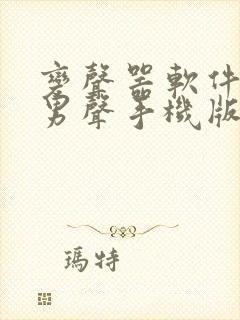 變聲器軟件
男聲手機版
瑪特